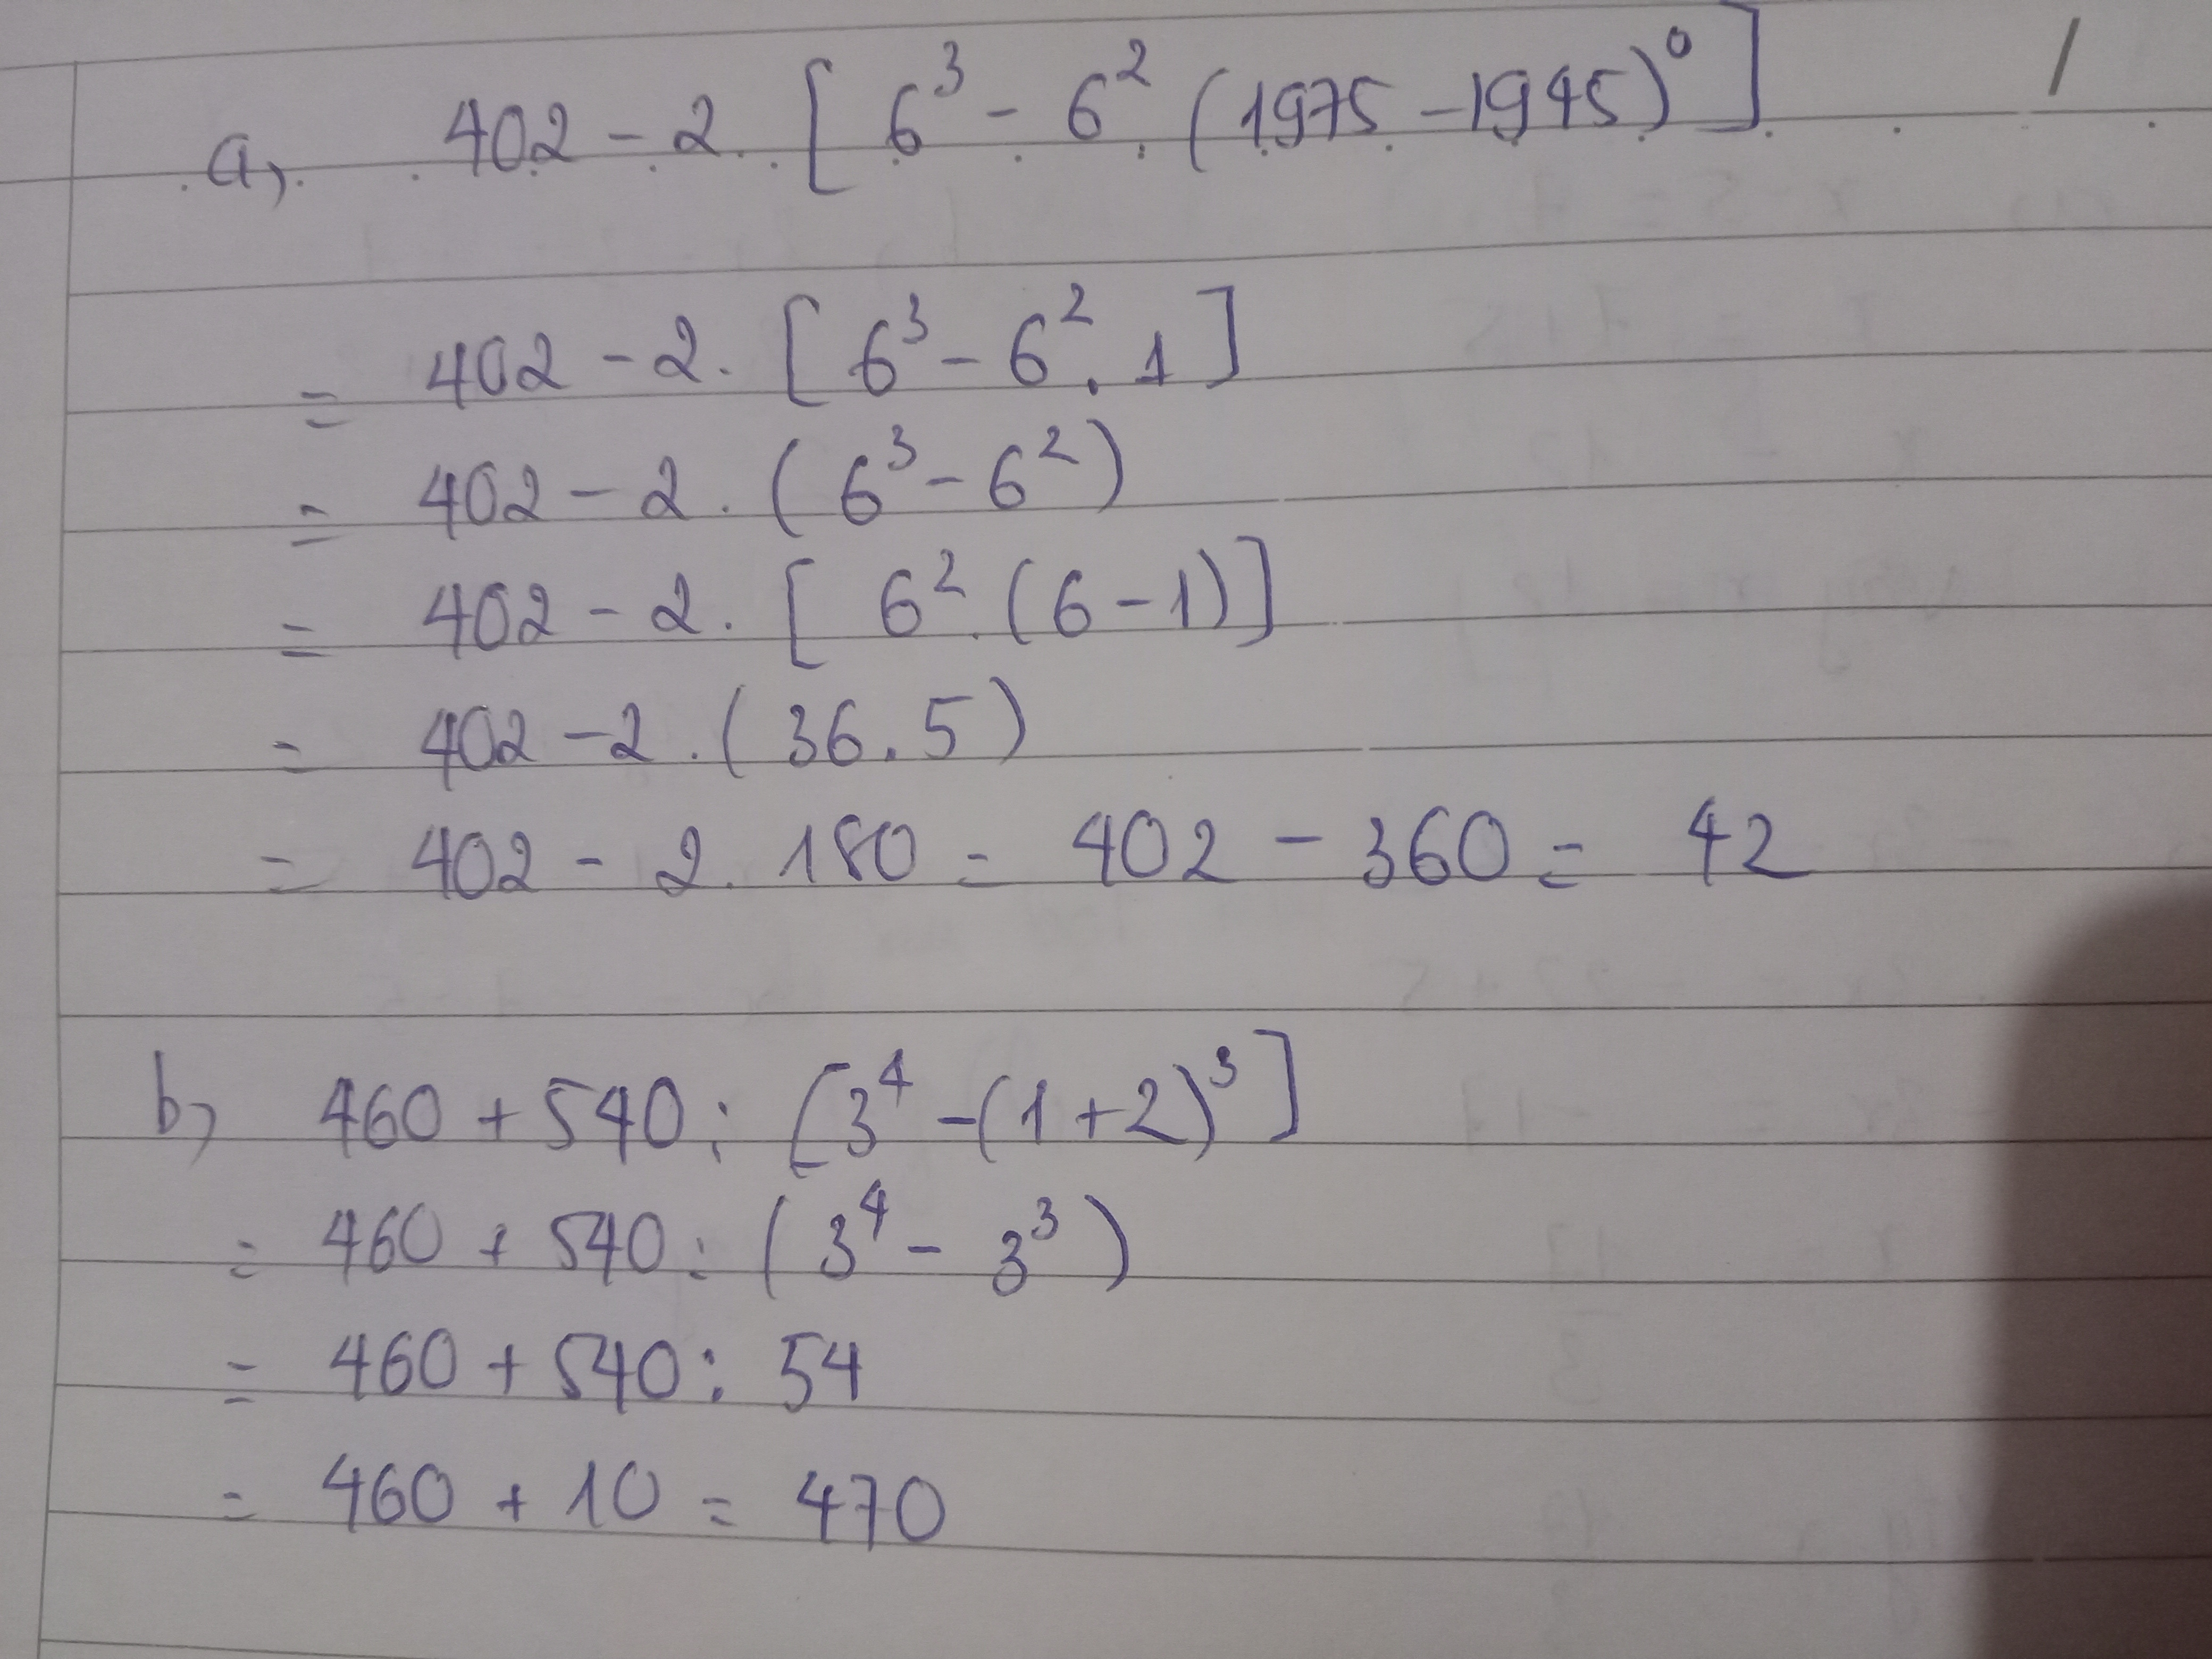 a, 402 - 2. [ 6³ - 6² (1975 - 1945)⁰ ]
= 402 - 2. [ 6³ - 6² . 1 ]
= 402 - 2 . ( 6³ - 6² )
= 402 - 2 . [ 6² . (6 - 1) ]
= 402 - 2 . ( 36 . 5 )
= 402 - 2 . 180 = 402 - 360 = 42
b, 460 + 540 : [ 3⁴ - (1 + 2)³ ]
= 460 + 540 : ( 3⁴ - 3³ )
= 460 + 540 : 54
= 460 + 10 = 470